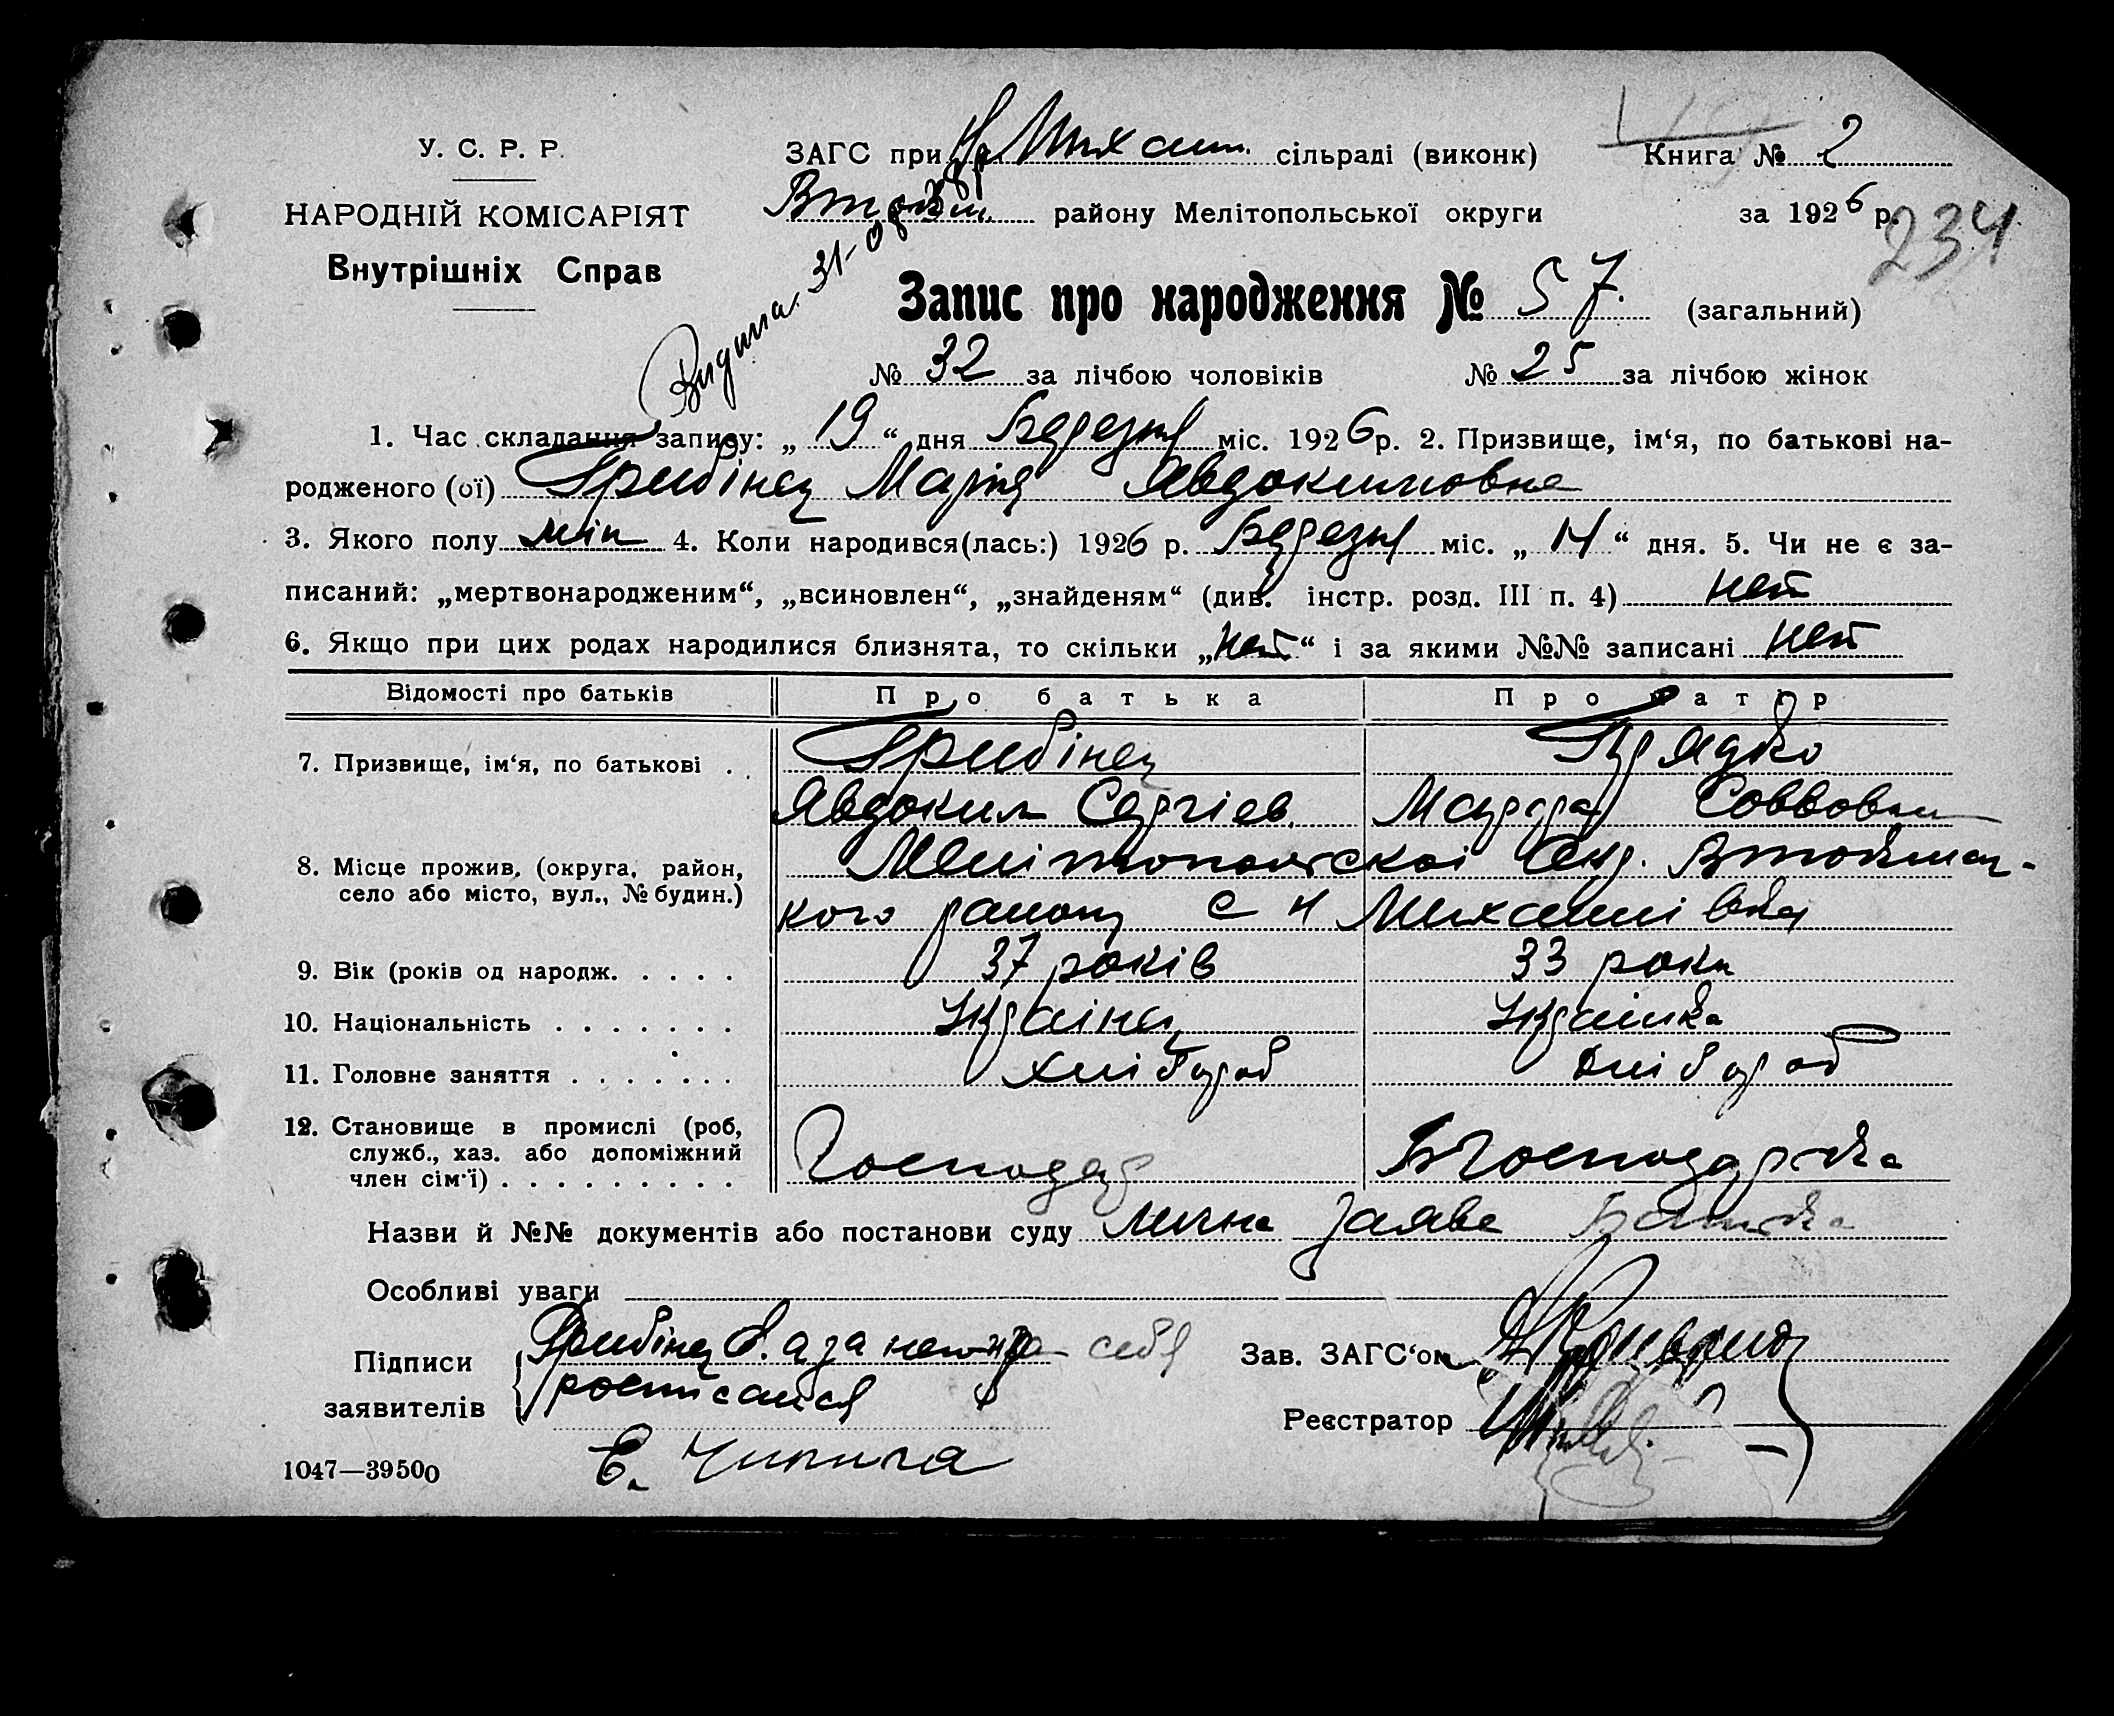 У. С. Р. Р.
НАРОДНІЙ КОМІСАРІЯТ
Внутрішніх Справ
ЗАГС при Н Михайл. сільраді (виконк)
района Мелітопольської округи
Книга № 2
за 1926 р.
234
Видана 31-08
Запис про народження № 57. (загальний)
№ 32 за лічбою чоловіків № 25 за лічбою жінок
1. Час складання запису: „ 19 “ дня Березня міс. 1926 р. 2. Призвище, ім‘я, по батькові на-
родженого (ої) Грибінец Марія Явдокимовна
3. Якого полу жін 4. Коли народився(лась:) 1926 р. Березня міс. „ 14 “ дня. 5. Чи не є за-
писаний: „мертвонародженим“, „всиновлен“, „знайденям“ (див. інстр. розд. III п. 4) нет
6. Якщо при цих родах народилися близнята, то скільки „нет“ і за якими №№ записані нет
Відомості про батьків Про батька Про матір
7. Призвище, ім‘я, по батькові . . Грибінец
Явдоким Сергіев. Саввовна
8. Місце прожив. (округа, район,
село або місто, вул., № будин.)
Мелітопольскої Окр.
кого району с Н Михайлівка
9. Вік (років од народж. . . . . 37 років 33 роки
10. Національність . . . . . . . Українец Українка
11. Головне заняття . . . . . . . хлібороб хлібороб
12. Становище в промислі (роб,
служб., хаз. або допоміжний
член сім‘ї) . . . . . . . . . Господар Господарка
Назви й №№ документів або постанови суду лична заява Батька
Особливі уваги
Підписи
заявителів
Грибінец а за негр себя
росписался
Е. Чипига
Зав. ЗАГС‘ом
Реєстратор
1047—39500